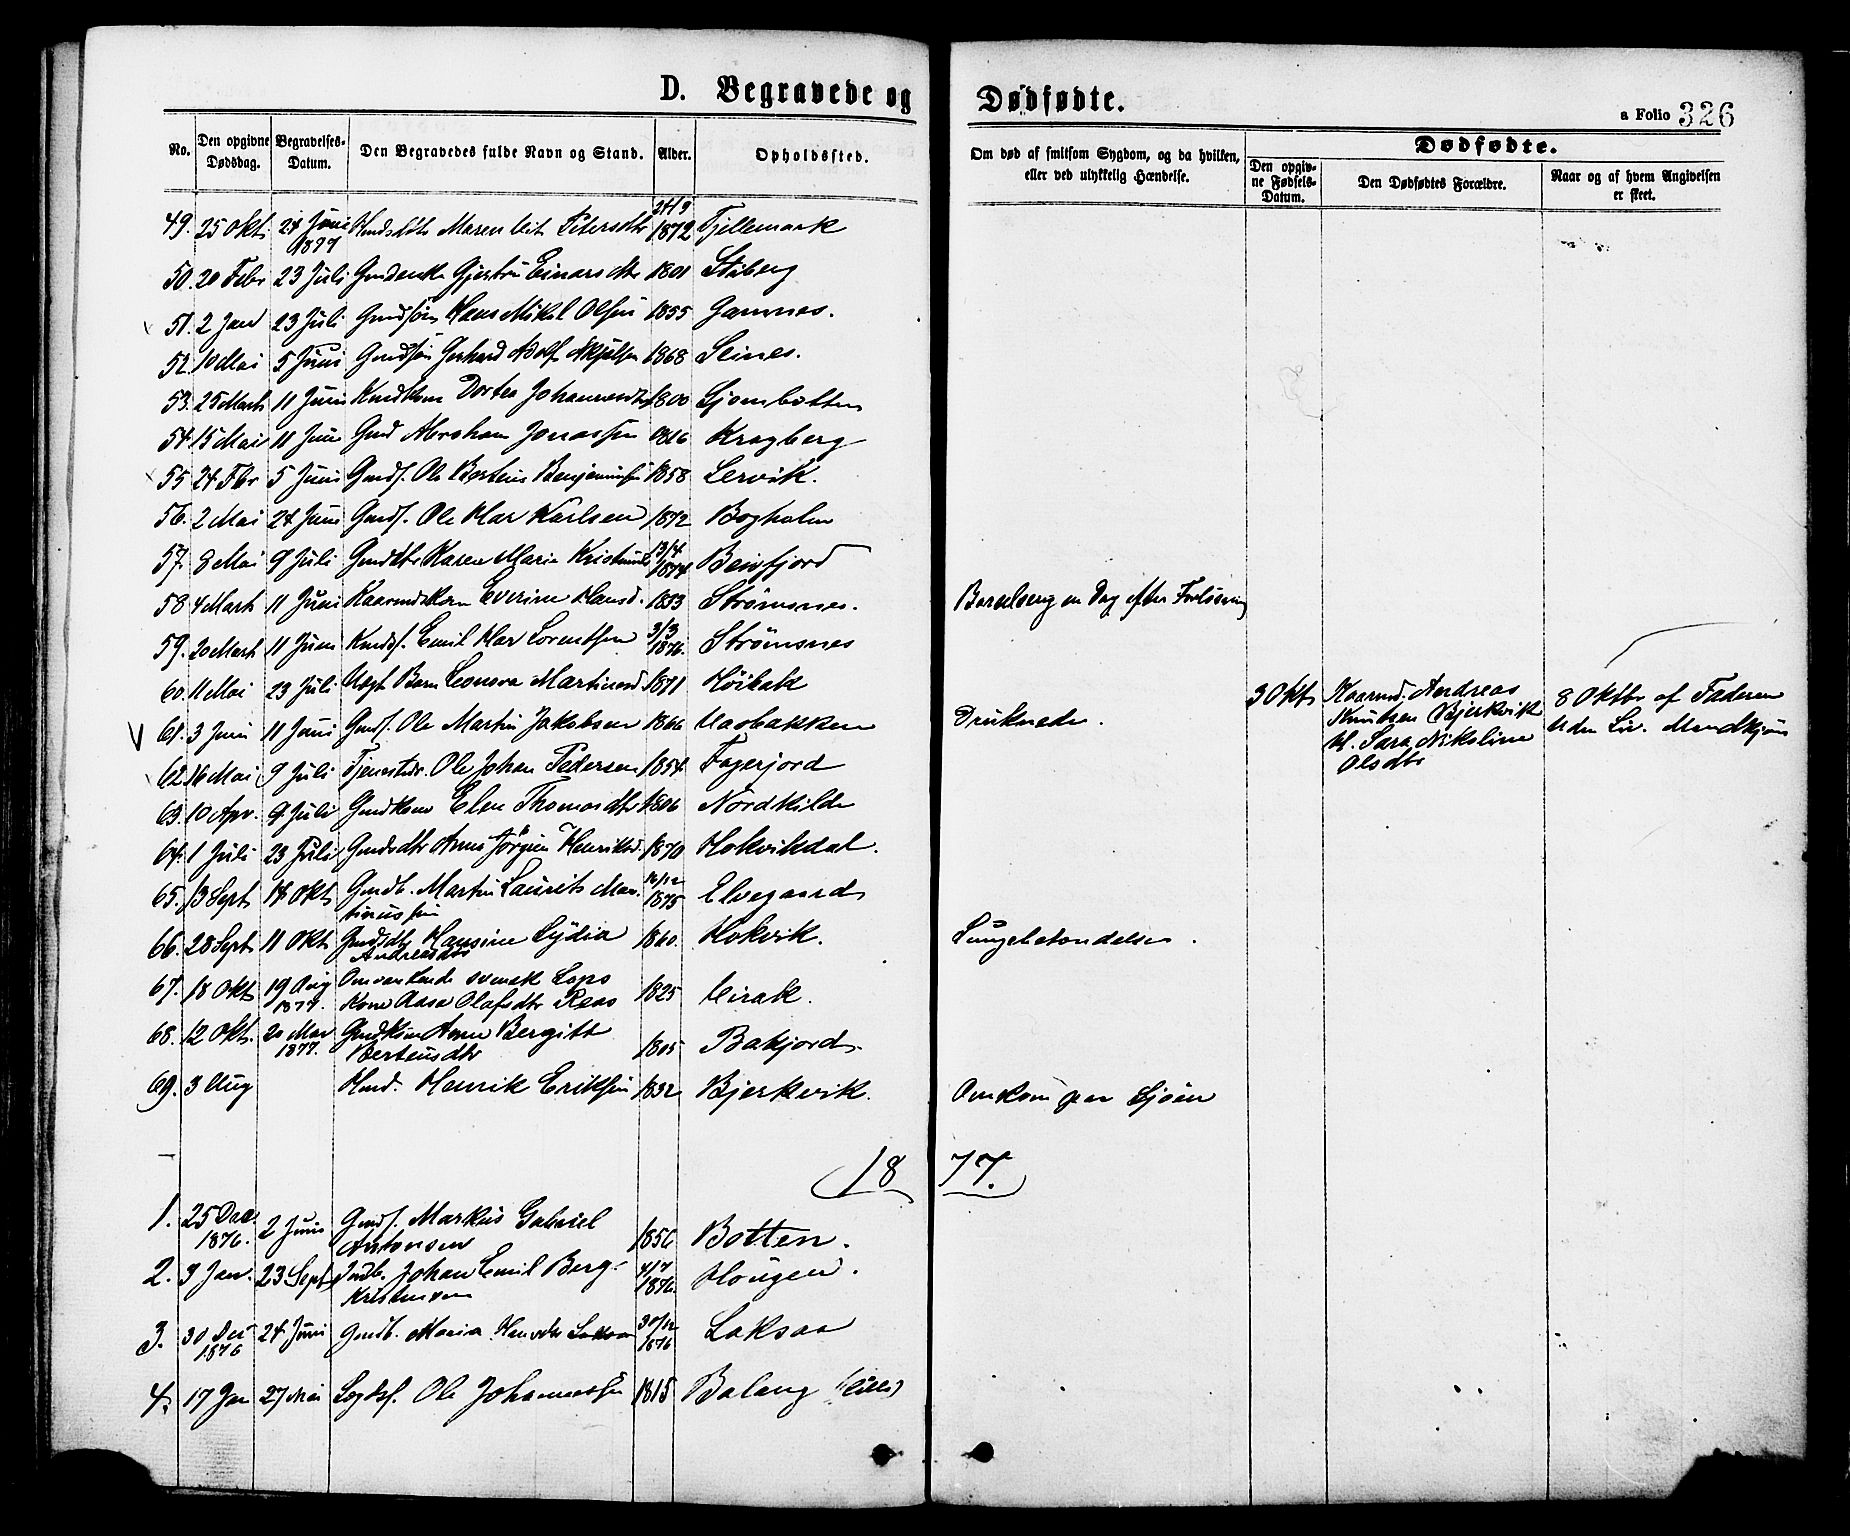 D. Begravede og Dødfødte.
a Folio 326
No. Den opgivne Dødsdag. Begravelses-Datum. Den Begravedes fulde Navn og Stand. Alder. Opholdssted. Om død af smitsom Sygdom, og da hvilken, eller ved ulykkelig Hændelse. Dødfødte. Den opgivne Fødsels-Datum. Den Dødfødtes Forældre. Naar og af hvem Angivelsen er skeet.
49. 25 Okt. 24 Juni 1877 Maren Petersdtr 24/9 1872 Fjellemark
50. 20 Febr 23 Juli Gmdenke Gjertru Einarsdtr 1801 Stiberg
51. 2 Jan 23 Juli Gmdsøn Hans Mikal Olsen 1855 Gamnes.
52. 10 Mai 5 Juni Gmdsøn Gerhard Adolf 1868 Leines.
53. 25 Marts 11 Juni Kmdkone Dortea Johannesdtr 1800 Sjombotten
54. 15 Mai 11 Juni Gmd Abraham Jonassen 1816 Kragberg
55 24 Fbr 5 Juni Gmds. Ole Berteus Benjaminsen 1858 Lervik.
56. 2 Mai 24 Juni Gmds. Ole Har Karlsen 1872 Bogholm
57. 8 Mai 9 Juli Gmddtr Karen Maria 13/4 1874 Beisfjord
58 4 Marts 11 Juni Kaarmdskone Everine Hansd. 1833 Strømsnes. Barselseng en Dag efter Forløsning
59. 20 Marts 11 Juni Kmds. Emil Har Lorentsen 3/3 1876. Strømsnes
60. 11 Mai 23 Juli Uægt Barn Leonora Martinesd 1871 Høibak 3 Okt Kaarmd. Andreas Knutsen Bjerkvik H. Sara Nikoline Olsdtr 8 Oktbr af Faderen Uden Liv.
61. 3 Juni 11 Juni Gmds. Ole Martin Jakobsen 1866 Haabakken Druknede.
62. 16 Mai 9 Juli Tjenestedr. Ole Johan Pedersen 1854 Fagerjord
63. 10 Apr. 9 Juli Gmdkone Elen Thomasdtr 1806 Nordkilde
64. 1 Juli 23 Juli Gmdsdtr Anna Jörgine Henriksd. 1870 Hokvikdal.
65. 13 Sept 14 Okt Gmdb. Martin Laurits Martinussen 16/12 1875 Elvegaard
66. 28 Sept 11 Okt Gmdsdtr Hansine Lydia Andreasdtr 1860. Hokvik. Lungebetændelse.
67. 18 Okt 19 Aug 1877. Omvankende svensk Laps Kone Aasa Olafsdtr Reas 1825
68. 12 Okt. 20 Mai 1877. Gmdkone Anne Bergitt Berteusdtr 1805 Bakjord.
69. 3 Aug Hmd. Henrik Eriksen 1832 Bjerkvik. Omkom paa Sjøen
1877.
1. 25 Dec. 1876. 2 Juni Gmds. Markus Gabriel Antonsen 1856 Botten.
2. 3 Jan. 23 Sept Indb. Johan Emil Berg Kristensen 4/7 1876. Hougen.
3. 30 Dec 1876 24 Juni Gmdb. Maria 30/12 1876 Laksaa
4. 17 Jan 27 Mai Ole Johannessen 1815 Balang (lille)